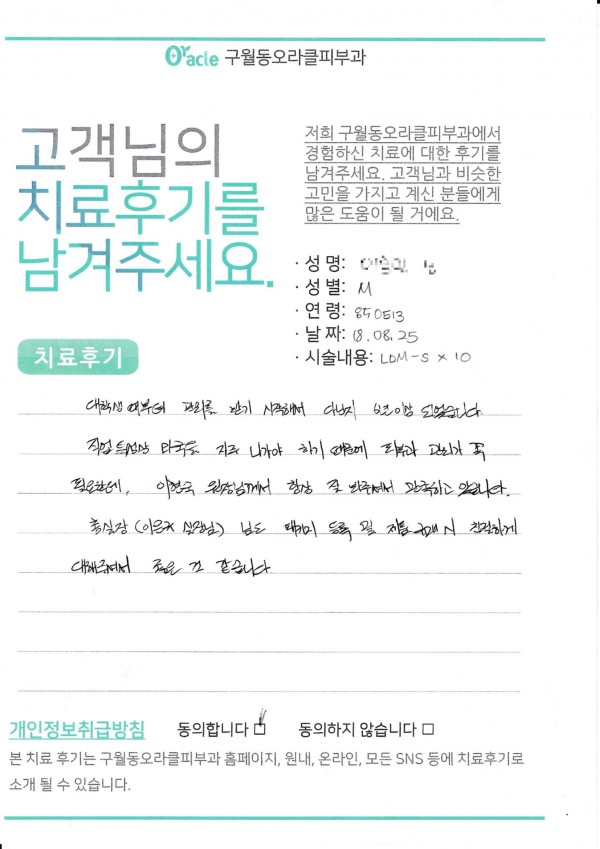 Oracle 구월동오라클피부과
고객님의
치료후기를
남겨주세요.
저희 구월동오라클피부과에서
경험하신 치료에 대한 후기를
남겨주세요. 고객님과 비슷한
고민을 가지고 계신 분들에게
많은 도움이 될 거에요.
· 성 명:
· 성 별: M
· 연 령: 850513
· 날 짜: 18.08.25
· 시술내용: LDM-S × 10
치료후기
대학생 때부터 관리를 받기 시작해서 다닌지 5년이상 되었습니다
직업 특성상 외국을 자주 나가야 하기 때문에 피부과 관리가 꼭
필요한데, 이현국 원장님께서 항상 잘 봐주셔서 만족하고 있습니다.
실장님) 님도 패키지 등록 및 제품 구매 시 친절하게
대해주셔서 좋은 것 같습니다
개인정보취급방침 동의합니다 동의하지 않습니다
본 치료 후기는 구월동오라클피부과 홈페이지, 원내, 온라인, 모든 SNS 등에 치료후기로
소개 될 수 있습니다.